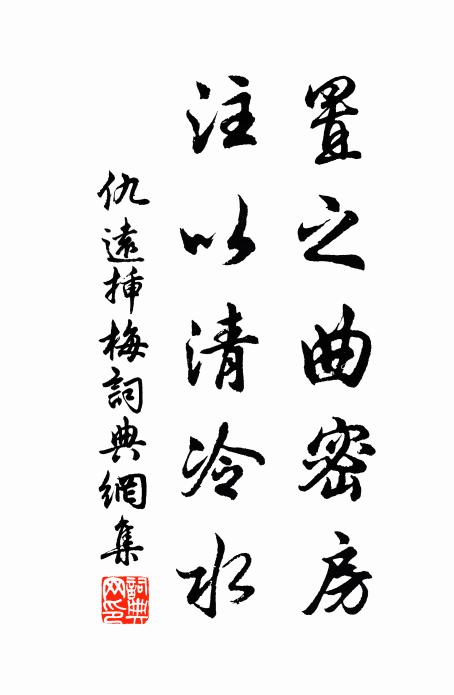 置之曲密房
注以清冷水
仇遠挿梅詞典網集
詞典网印